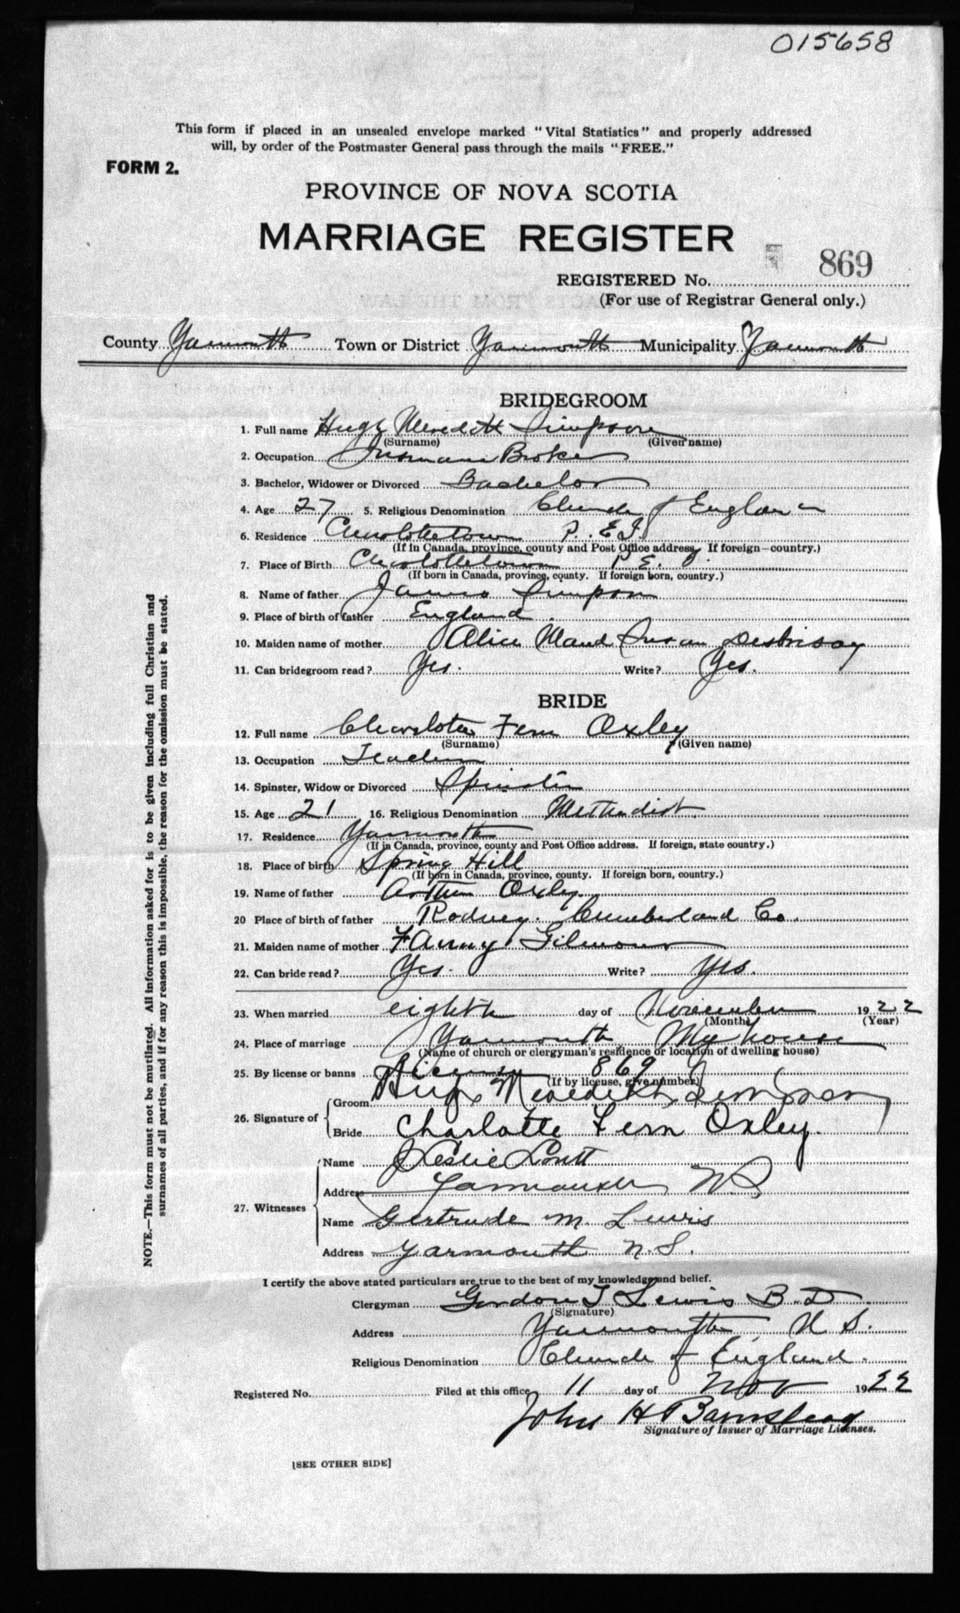 015658
This form if placed in an unsealed envelope marked "Vital Statistics" and properly addressed
will, by order of the Postmaster General pass through the mails "FREE."
FORM 2.
PROVINCE OF NOVA SCOTIA
MARRIAGE REGISTER
REGISTERED No. 869
(For use of Registrar General only.)
County Yarmouth Town or District Yarmouth Municipality Yarmouth
BRIDEGROOM
1. Full name Hugh Meredith Simpson
(Surname) (Given name)
2. Occupation Insurance Broker
3. Bachelor, Widower or Divorced Bachelor
4. Age 27 5. Religious Denomination Church of England
6. Residence Charlottetown P.E.I.
(If in Canada, province, county and Post Office address. If foreign—country.)
7. Place of Birth Charlottetown P.E.I.
(If born in Canada, province, county. If foreign born, country.)
8. Name of father James Simpson
9. Place of birth of father England
10. Maiden name of mother Alice Maud Susan Desbrisay
11. Can bridegroom read? Yes. Write? Yes.
BRIDE
12. Full name Charlotte Fern Oxley
(Surname) (Given name)
13. Occupation Teacher
14. Spinster, Widow or Divorced Spinster
15. Age 21 16. Religious Denomination Methodist
17. Residence Yarmouth
(If in Canada, province, county and Post Office address. If foreign, state country.)
18. Place of birth Spring Hill
(If born in Canada, province, county. If foreign born, country.)
19. Name of father Arthur Oxley
20 Place of birth of father Rodney. Cumberland Co.
21. Maiden name of mother Fanny Gilmour
22. Can bride read? Yes. Write? Yes.
23. When married eighth day of November 1922
(Month) (Year)
24. Place of marriage Yarmouth My house
(Name of church or clergyman's residence or location of dwelling house)
25. By license or banns License 869
(If by license, give number)
26. Signature of
Groom Hugh Meredith Simpson
Bride Charlotte Fern Oxley.
27. Witnesses
Name Leslie Lovitt
Address Yarmouth N S
Name Gertrude M. Lewis
Address Yarmouth N.S.
I certify the above stated particulars are true to the best of my knowledge and belief.
Clergyman Gordon T Lewis B.D.
(Signature)
Address Yarmouth, N S.
Religious Denomination Church of England.
Registered No. Filed at this office 11 day of Nov 1922
John H Barnstead
Signature of Issuer of Marriage Licenses.
[SEE OTHER SIDE]
NOTE.—This form must not be mutilated. All information asked for is to be given including full Christian and
surnames of all parties, and if for any reason this is impossible, the reason for the omission must be stated.